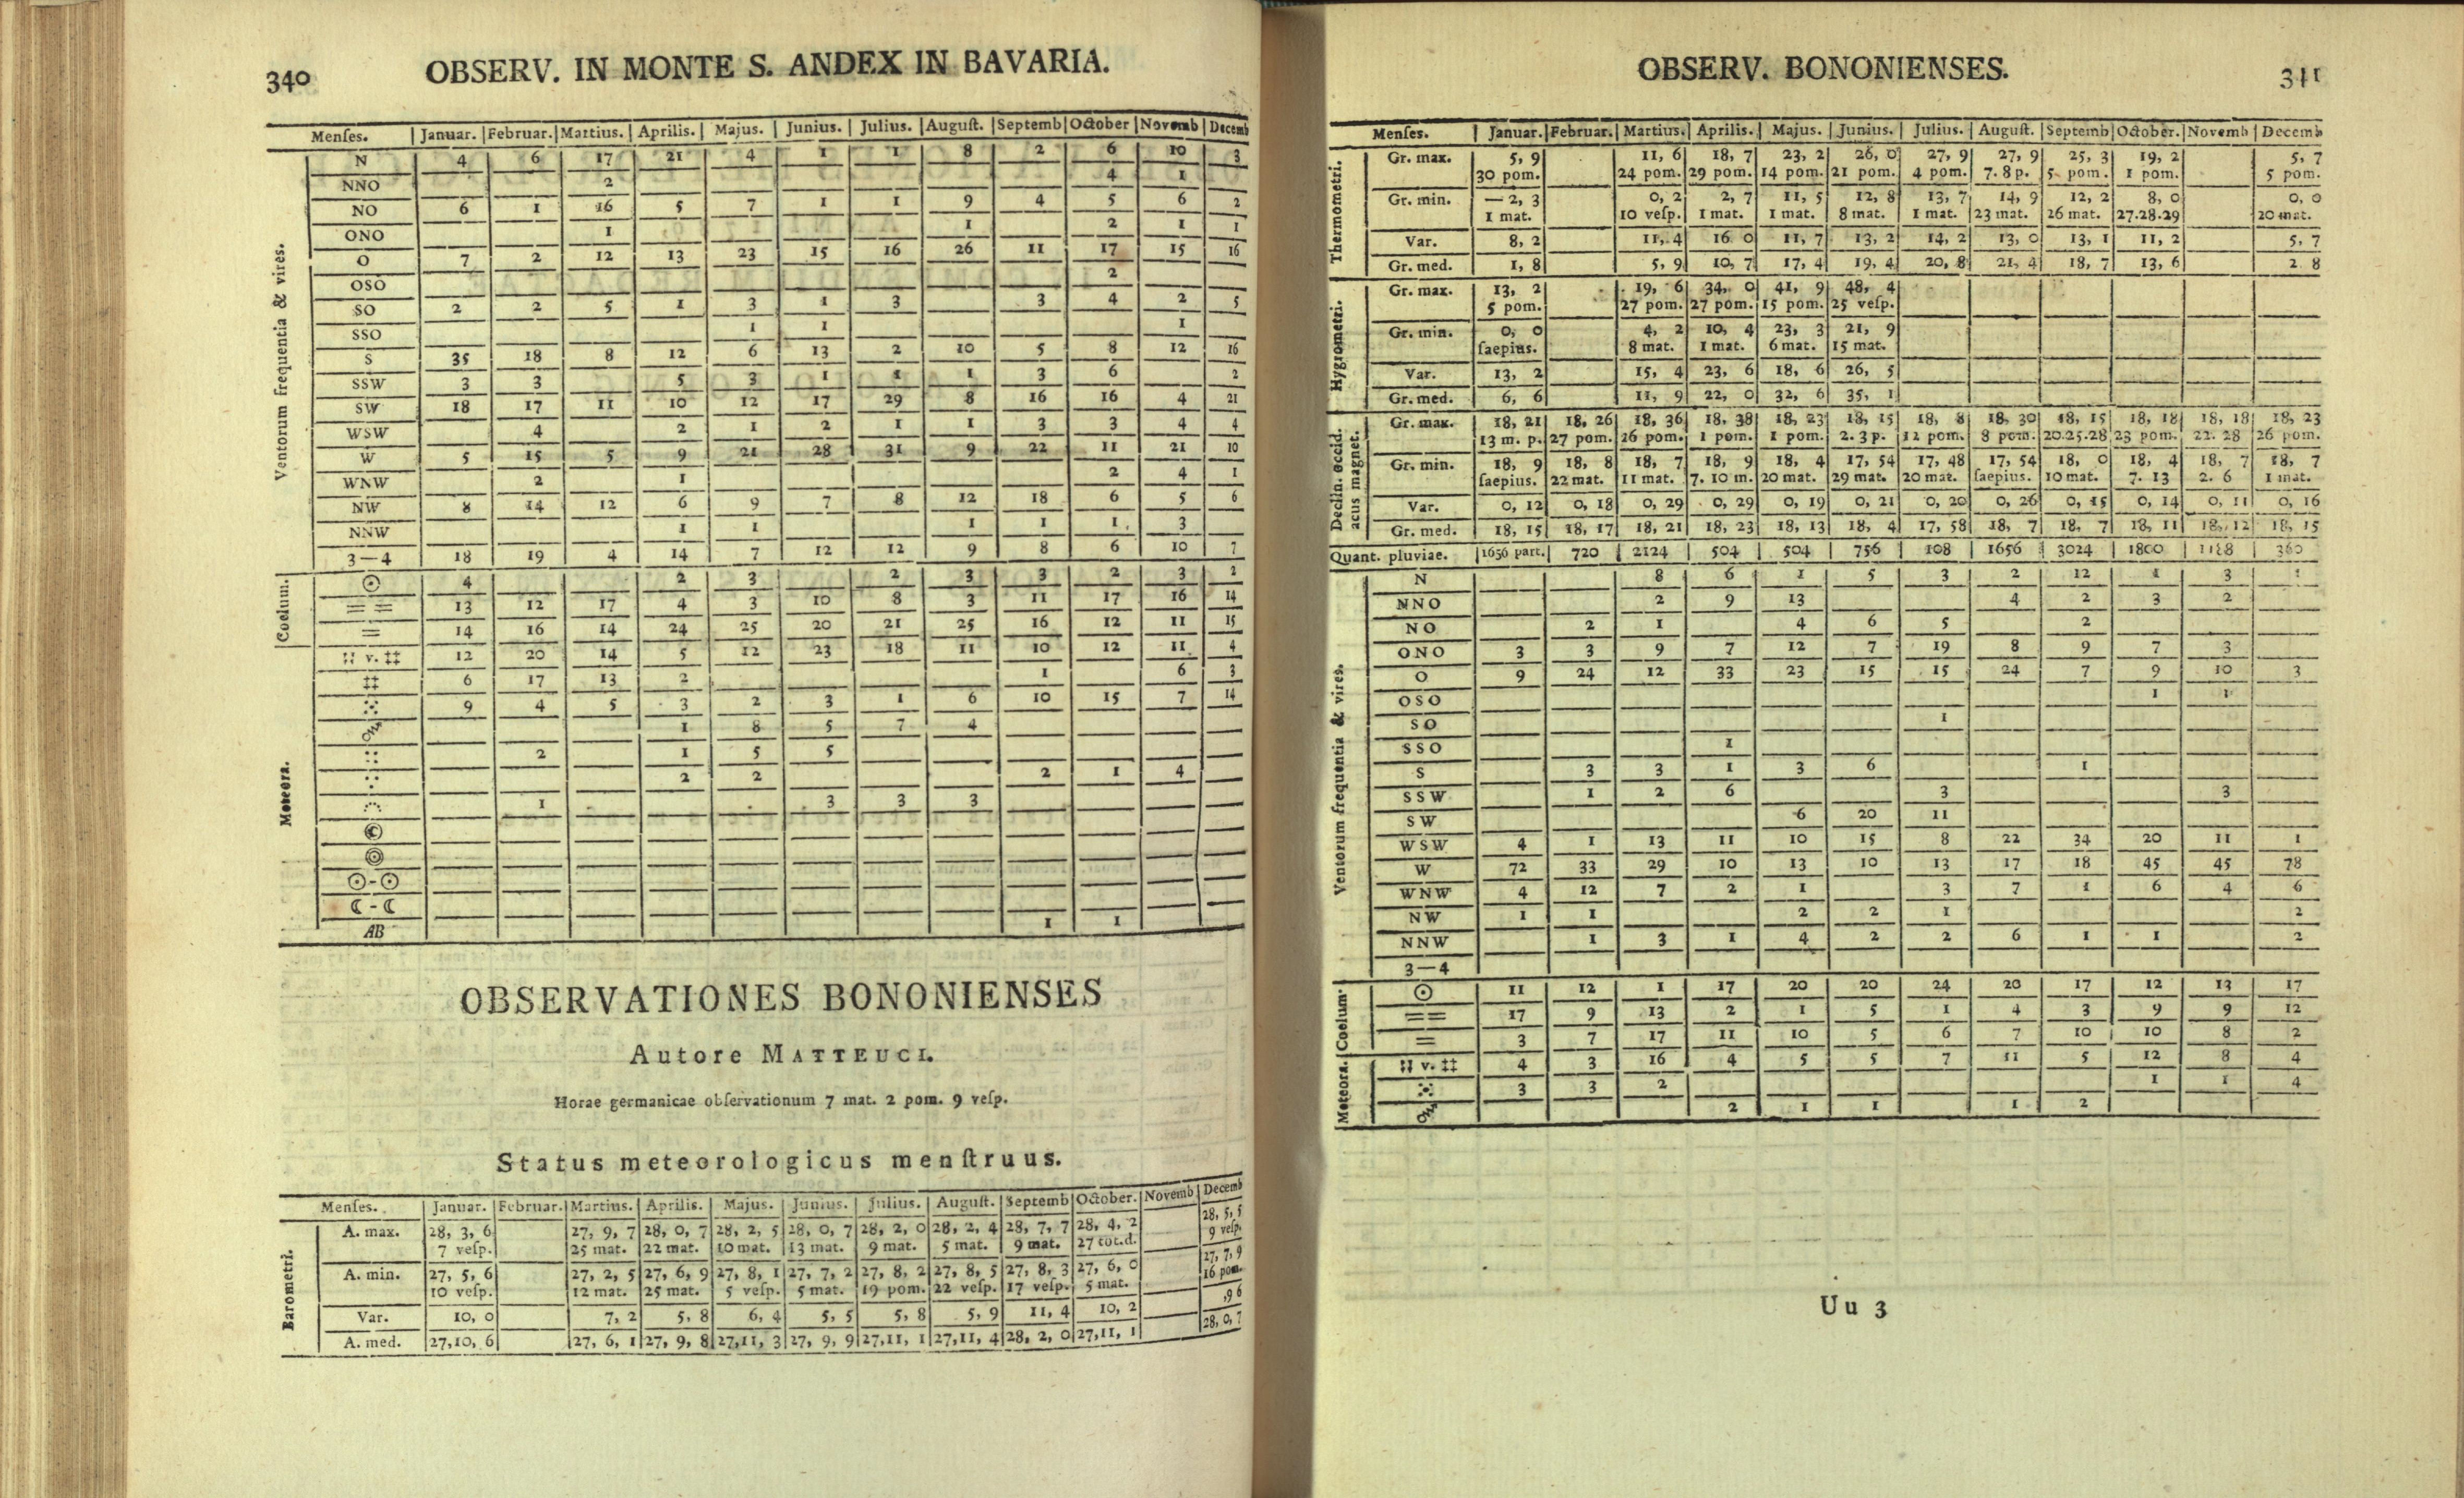 340 OBSERV. IN MONTE S. ANDEX IN BAVARIA.
Menſes. | Januar. | Februar. | Martius. | Aprilis. | Majus. | Junius. | Julius. | Auguſt. | Septemb | October | Novemb | Decemb
Ventorum frequentia & vires.
N | 4 | 6 | 17 | 21 | 4 | 1 | 1 | 8 | 2 | 6 | 10 | 3
NNO | | | 2 | | | | | | | 4 | 1 |
NO | 6 | 1 | 16 | 5 | 7 | 1 | 1 | 9 | 4 | 5 | 6 | 2
ONO | | | 1 | | | | | 1 | | 2 | 1 | 1
O | 7 | 2 | 12 | 13 | 23 | 15 | 16 | 26 | 11 | 17 | 15 | 16
OSO | | | | | | | | | | 2 | |
SO | 2 | 2 | 5 | 1 | 3 | 1 | 3 | | 3 | 4 | 2 | 5
SSO | | | | | 1 | 1 | | | | | 1 |
S | 35 | 18 | 8 | 12 | 6 | 13 | 2 | 10 | 5 | 8 | 12 | 16
SSW | 3 | 3 | | 5 | 3 | 1 | 1 | 1 | 3 | 6 | | 2
SW | 18 | 17 | 11 | 10 | 12 | 17 | 29 | 8 | 16 | 16 | 4 | 21
WSW | | 4 | | 2 | 1 | 2 | 1 | 1 | 3 | 3 | 4 | 4
W | 5 | 15 | 5 | 9 | 21 | 28 | 31 | 9 | 22 | 11 | 21 | 10
WNW | | 2 | | 1 | | | | | | 2 | 4 | 1
NW | 8 | 14 | 12 | 6 | 9 | 7 | 8 | 12 | 18 | 6 | 5 | 6
NNW | | | | 1 | 1 | | | 1 | 1 | 1 | 3 |
3—4 | 18 | 19 | 4 | 14 | 7 | 12 | 12 | 9 | 8 | 6 | 10 | 7
Coelum.
☉ | 4 | | | 2 | 3 | | 2 | 3 | 3 | 2 | 3 | 2
== | 13 | 12 | 17 | 4 | 3 | 10 | 8 | 3 | 11 | 17 | 16 | 14
= | 14 | 16 | 14 | 24 | 25 | 20 | 21 | 25 | 16 | 12 | 11 | 15
Meteora.
¦¦ v. ‡‡ | 12 | 20 | 14 | 5 | 12 | 23 | 18 | 11 | 10 | 12 | 11 | 4
‡‡ | 6 | 17 | 13 | 2 | | | | | 1 | | 6 | 3
⁙ | 9 | 4 | 5 | 3 | 2 | 3 | 1 | 6 | 10 | 15 | 7 | 14
| | | | 1 | 8 | 5 | 7 | 4 | | | |
:: | | 2 | | 1 | 5 | 5 | | | | | |
∵ | | | | 2 | 2 | | | | 2 | 1 | 4 |
| | 1 | | | | 3 | 3 | 3 | | | |
☾
◎
☉-☉
☾-☾
AB | | | | | | | | | 1 | 1 | |
OBSERVATIONES BONONIENSES
Autore MATTEUCI.
Horae germanicae obſervationum 7 mat. 2 pom. 9 veſp.
Status meteorologicus menſtruus.
Menſes. | Januar. | Februar. | Martius. | Aprilis. | Majus. | Junius. | Julius. | Auguſt. | Septemb | October. | Novemb | Decemb
Barometri.
A. max. | 28, 3, 6 | | 27, 9, 7 | 28, 0, 7 | 28, 2, 5 | 28, 0, 7 | 28, 2, 0 | 28, 2, 4 | 28, 7, 7 | 28, 4, 2 | | 28, 5, 5
7 veſp. | | 25 mat. | 22 mat. | 10 mat. | 13 mat. | 9 mat. | 5 mat. | 9 mat. | 27 tot.d. | | 9 veſp.
A. min. | 27, 5, 6 | | 27, 2, 5 | 27, 6, 9 | 27, 8, 1 | 27, 7, 2 | 27, 8, 2 | 27, 8, 5 | 27, 8, 3 | 27, 6, 0 | | 27, 7, 9
10 veſp. | | 12 mat. | 25 mat. | 5 veſp. | 5 mat. | 19 pom. | 22 veſp. | 17 veſp. | 5 mat. | | 16 pom.
Var. | 10, 0 | | 7, 2 | 5, 8 | 6, 4 | 5, 5 | 5, 8 | 5, 9 | 11, 4 | 10, 2 | | ,9 6
A. med. | 27,10, 6 | | 27, 6, 1 | 27, 9, 8 | 27,11, 3 | 27, 9, 9 | 27,11, 1 | 27,11, 4 | 28, 2, 0 | 27,11, 1 | | 28, 0, 7
OBSERV. BONONIENSES. 341
Menſes. | Januar. | Februar. | Martius. | Aprilis. | Majus. | Junius. | Julius. | Auguſt. | Septemb | October. | Novemb | Decemb
Thermometri.
Gr. max. | 5, 9 | | 11, 6 | 18, 7 | 23, 2 | 26, 0 | 27, 9 | 27, 9 | 25, 3 | 19, 2 | | 5, 7
30 pom. | | 24 pom. | 29 pom. | 14 pom. | 21 pom. | 4 pom. | 7. 8 p. | 5 pom. | 1 pom. | | 5 pom.
Gr. min. | — 2, 3 | | 0, 2 | 2, 7 | 11, 5 | 12, 8 | 13, 7 | 14, 9 | 12, 2 | 8, 0 | | 0, 0
1 mat. | | 10 veſp. | 1 mat. | 1 mat. | 8 mat. | 1 mat. | 23 mat. | 26 mat. | 27.28.29 | | 20 mat.
Var. | 8, 2 | | 11, 4 | 16 0 | 11, 7 | 13, 2 | 14, 2 | 13, 0 | 13, 1 | 11, 2 | | 5, 7
Gr. med. | 1, 8 | | 5, 9 | 10, 7 | 17, 4 | 19, 4 | 20, 8 | 21, 4 | 18, 7 | 13, 6 | | 2. 8
Hygrometri.
Gr. max. | 13, 2 | | 19, 6 | 34, 0 | 41, 9 | 48, 4
5 pom. | | 27 pom. | 27 pom. | 15 pom. | 25 veſp.
Gr. min. | 0, 0 | | 4, 2 | 10, 4 | 23, 3 | 21, 9
ſaepius. | | 8 mat. | 1 mat. | 6 mat. | 15 mat.
Var. | 13, 2 | | 15, 4 | 23, 6 | 18, 6 | 26, 5
Gr. med. | 6, 6 | | 11, 9 | 22, 0 | 32, 6 | 35, 1
Declin. occid. acus magnet.
Gr. max. | 18, 21 | 18, 26 | 18, 36 | 18, 38 | 18, 23 | 18, 15 | 18, 8 | 18, 30 | 18, 15 | 18, 18 | 18, 18 | 18, 23
13 m. p. | 27 pom. | 26 pom. | 1 pom. | 1 pom. | 2. 3 p. | 12 pom. | 8 pom. | 20.25.28 | 23 pom. | 22. 28 | 26 pom.
Gr. min. | 18, 9 | 18, 8 | 18, 7 | 18, 9 | 18, 4 | 17, 54 | 17, 48 | 17, 54 | 18, 0 | 18, 4 | 18, 7 | 18, 7
ſaepius. | 22 mat. | 11 mat. | 7. 10 m. | 20 mat. | 29 mat. | 20 mat. | ſaepius. | 10 mat. | 7. 13 | 2. 6 | 1 mat.
Var. | 0, 12 | 0, 18 | 0, 29 | 0, 29 | 0, 19 | 0, 21 | 0, 20 | 0, 26 | 0, 15 | 0, 14 | 0, 11 | 0, 16
Gr. med. | 18, 15 | 18, 17 | 18, 21 | 18, 23 | 18, 13 | 18, 4 | 17, 58 | 18, 7 | 18, 7 | 18, 11 | 18, 12 | 18, 15
Quant. pluviae. | 1656 part. | 720 | 2124 | 504 | 504 | 756 | 108 | 1656 | 3024 | 1800 | 1188 | 360
Ventorum frequentia & vires.
N | | | 8 | 6 | 1 | 5 | 3 | 2 | 12 | 1 | 3 |
NNO | | | 2 | 9 | 13 | | | 4 | 2 | 3 | 2 |
NO | | 2 | 1 | | 4 | 6 | 5 | | 2 | | |
ONO | 3 | 3 | 9 | 7 | 12 | 7 | 19 | 8 | 9 | 7 | 3 |
O | 9 | 24 | 12 | 33 | 23 | 15 | 15 | 24 | 7 | 9 | 10 | 3
OSO | | | | | | | | | | 1 | 1 |
SO | | | | | | | 1 | | | | |
SSO | | | | 1 | | | | | | | |
S | | 3 | 3 | 1 | 3 | 6 | | | 1 | | |
SSW | | 1 | 2 | 6 | | | 3 | | | | 3 |
SW | | | | | 6 | 20 | 11 | | | | |
WSW | 4 | 1 | 13 | 11 | 10 | 15 | 8 | 22 | 34 | 20 | 11 | 1
W | 72 | 33 | 29 | 10 | 13 | 10 | 13 | 17 | 18 | 45 | 45 | 78
WNW | 4 | 12 | 7 | 2 | 1 | | 3 | 7 | 1 | 6 | 4 | 6
NW | 1 | 1 | | | 2 | 2 | 1 | | | | | 2
NNW | | 1 | 3 | 1 | 4 | 2 | 2 | 6 | 1 | 1 | | 2
3—4
Coelum.
☉ | 11 | 12 | 1 | 17 | 20 | 20 | 24 | 20 | 17 | 12 | 13 | 17
== | 17 | 9 | 13 | 2 | 1 | 5 | 1 | 4 | 3 | 9 | 9 | 12
= | 3 | 7 | 17 | 11 | 10 | 5 | 6 | 7 | 10 | 10 | 8 | 2
Meteora.
¦¦ v. ‡‡ | 4 | 3 | 16 | 4 | 5 | 5 | 7 | 11 | 5 | 12 | 8 | 4
⁙ | 3 | 3 | 2 | | | | | | | 1 | 1 | 4
| | | | 2 | 1 | 1 | | 1 | 2 | | |
Uu 3